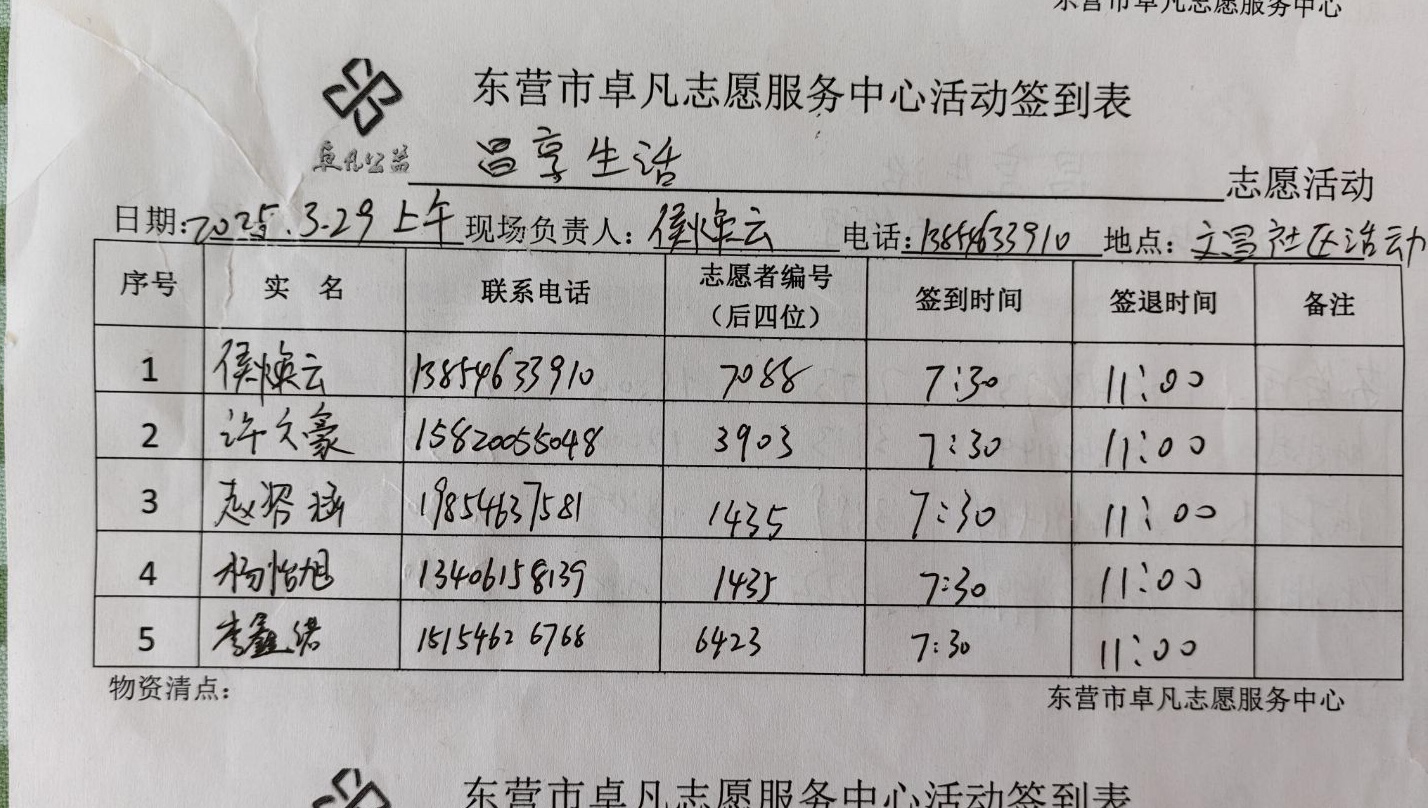 东营市卓凡志愿服务中心
东营市卓凡志愿服务中心活动签到表
卓凡公益 昌享生活 志愿活动
日期:2025.3.29上午 现场负责人:侯焕云 电话:13854633910 地点:文昌社区活动
序号 实 名 联系电话 志愿者编号 (后四位) 签到时间 签退时间 备注
1 侯焕云 13854633910 7088 7:30 11:00
2 许文豪 15820055048 3903 7:30 11:00
3 赵 涵 19854637581 1435 7:30 11:00
4 杨怡旭 13406158139 1435 7:30 11:00
5 李鑫 15154626768 6423 7:30 11:00
物资清点: 东营市卓凡志愿服务中心
东营市卓凡志愿服务中心活动签到表